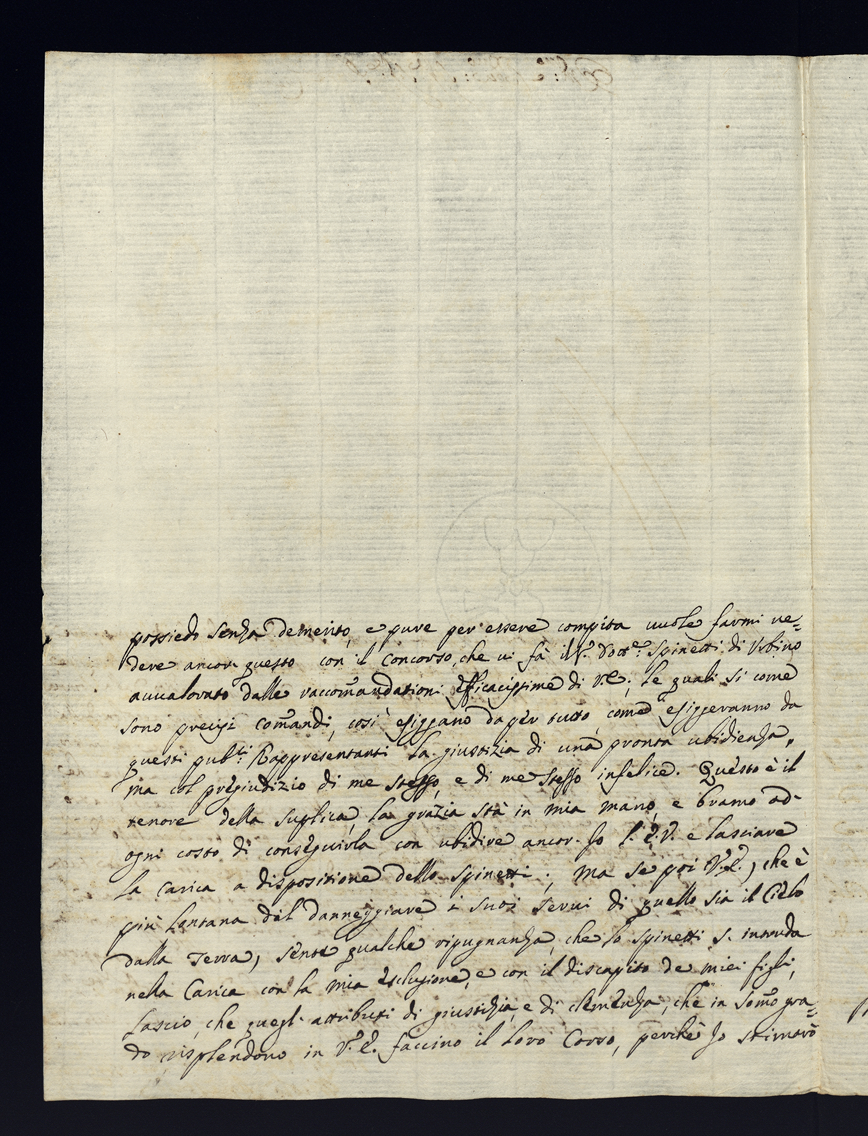 possiedo senza demerito, e pure per essere compita vuole farmi ve=
dere ancor questo con il Concorso, che vi fà il Sr. Dotte. Spinetti di Urbino
avvalorato dalle raccomandationi efficacissime di V.E., le quali si come
sono precisi comandi, così esiggano da per tutto, come esiggeranno da
questi pubci. Rappresentanti la giustizia di una pronta ubidienza,
ma col pregiudizio di me stesso, e di me stesso infelice. Questo è il
tenore della suplica, la grazia stà in mia mano, e bramo ad
ogni costo di conseguirla con ubidire ancor Io l'E.V. e lasciare
la Carica a dispositione dello Spinetti; ma se poi V.E., che è
più lontana del danneggiare i suoi servi di quello sia il Cielo
dalla Terra, sente qualche ripugnanza, che lo Spinetti s'intruda
nella Carica con la mia esclusione, e con il discapito de miei figli,
lascio, che quegl'attributi di giustizia, e di clemenza, che in somo gra=
do risplendono in V.E. faccino il loro Corso, perchè Io stimarò